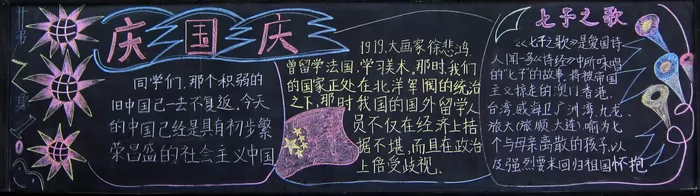 庆国庆
同学们,那个积弱的
旧中国已一去不复返,今天
的中国已经是具有初步繁
荣昌盛的社会主义中国
1919,大画家徐悲鸿,
曾留学法国,学习美术。那时,我们
的国家正处在北洋军阀的统治
之下,那时我国的国外留学人
员不仅在经济上拮
据不堪,而且在政治
上倍受歧视。
七子之歌
《七子之歌》是爱国诗
人闻一多《诗经》中所咏唱
的"七子"的故事,将被帝国
主义掠走的澳门、香港、
台湾、威海卫、广洲湾、九龙、
旅大(旅顺,大连),喻为七
个与母亲离散的孩子,以
及强烈要求回归祖国怀抱